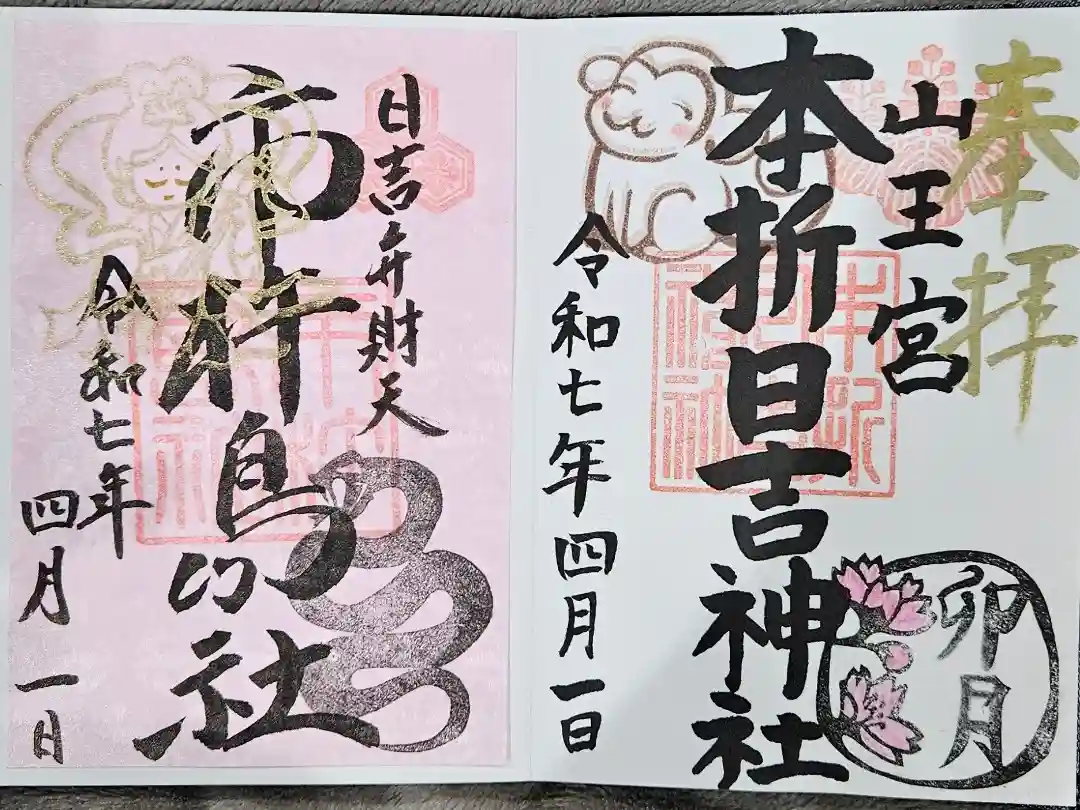 奉拝
山王宮
本折日吉神社
令和七年四月一日
卯月
日吉弁財天
市杵島社
令和七年
四月
一日